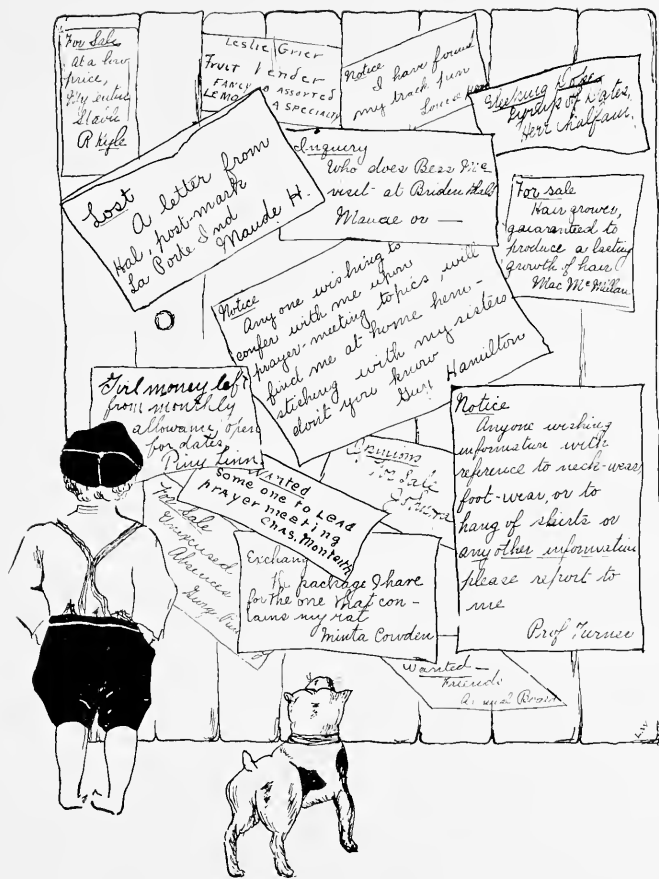 For Sale
At a low
price,
My entire
Slavic
R Kyle
Leslie Grier
Fruit Vender
FANCY & ASSORTED
LEMO A SPECIALTY
Notice
I have found
my track pun
Louise
Group of Dates,
Herr Chalfant.
Lost
A letter from
Hal, post-mark
La Porte Ind
Maude H.
Inquiry
Who does Bess
visit at Briden Hall
Maude or —
For sale
Hair grower,
guaranteed to
produce a lasting
growth of hair
Mac McMillan
Notice
Anyone wishing to
confer with me upon
prayer-meeting topics, will
find me at home hem-
stiching with my sisters
don't you know
Guy Hamilton
money left
from monthly
allowance, open
for dates.
Piny Linn
Opinions
For Sale
Wanted
Some one to LEAD
prayer meeting
Chas. Monteith
For Sale
Unexcused
Absences
Exchang
The package I have
for the one that con-
tains my rat
Minta Cowden
Notice
Anyone wishing
information with
reference to neck-wear
foot-wear, or to
hang of skirts or
any other information
please report to
me
Prof Turner
Wanted—
Friends